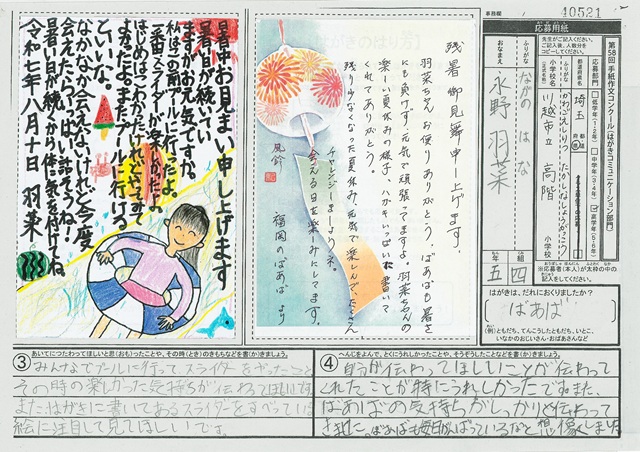 暑中お見まい申し上げます
暑い日が続いてい
ますがお元気ですか。
私はこの前プールに行ったよ。
一番スライダーが楽しかったよ
はじめはこわかったけれど
またプールに行ける
といいな。
なかなか会えないけれど今度
会えたらいっぱい話そうね!
暑い日が続くから体に気を付けてね
令和七年八月十日 羽菜
残暑御見舞申し上げます。
羽菜ちゃん お便りありがとう。ばあばも暑さ
にも負けず、元気で頑張ってますよ。羽菜ちゃんの
楽しい夏休みの様子、ハガキいっぱいに書いて
くれてありがとう。
残り少なくなった夏休み、元気で楽しんで、たくさん
チャレンジしましょうネ。
会える日を楽しみにしてます。
福岡のばあば より
風鈴
事務欄
40521
第58回 手紙作文コンクール(はがきコミュニケーション部門)
応募用紙
先生がご記入ください。
応募部門
低学年(1・2年)
中学年(3・4年)
高学年(5・6年)
都道府県名
埼玉
小学校名
川越市立 高階
小学校
ふりがな
ながの はな
おなまえ
永野 羽菜
五年
四組
※応募者(本人)が太枠の中の
記入をしてください。
はがきは、だれにおくりましたか?
ばあば
(例)ともだち、てんこうしたともだち、いとこ、
いなかのおじいさん・おばあさんなど
③ あいてにつたわってほしいと思(おも)ったことや、その時(とき)のきもちなどを書(か)きましょう。
みんなでプールに行ってスライダーをやったこと
その時の楽しかった気持ちが伝わってほしいです
またはがきに書いてあるスライダーをすべっている
絵に注目して見てほしいです。
④ へんじをよんで、とくにうれしかったことや、そうぞうしたことなどを書(か)きましょう。
自分が伝わってほしいことが伝わって
くれたことが特にうれしかったです。また、
ばあばの気持ちがしっかりと伝わって
きました。ばあばも毎日がんばっているなと想像しました